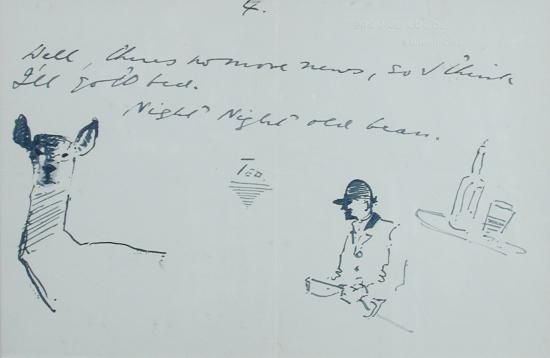 4.
Well, theres no more news, so I think
I'll go to bed.
Night Night old bean.
TED.